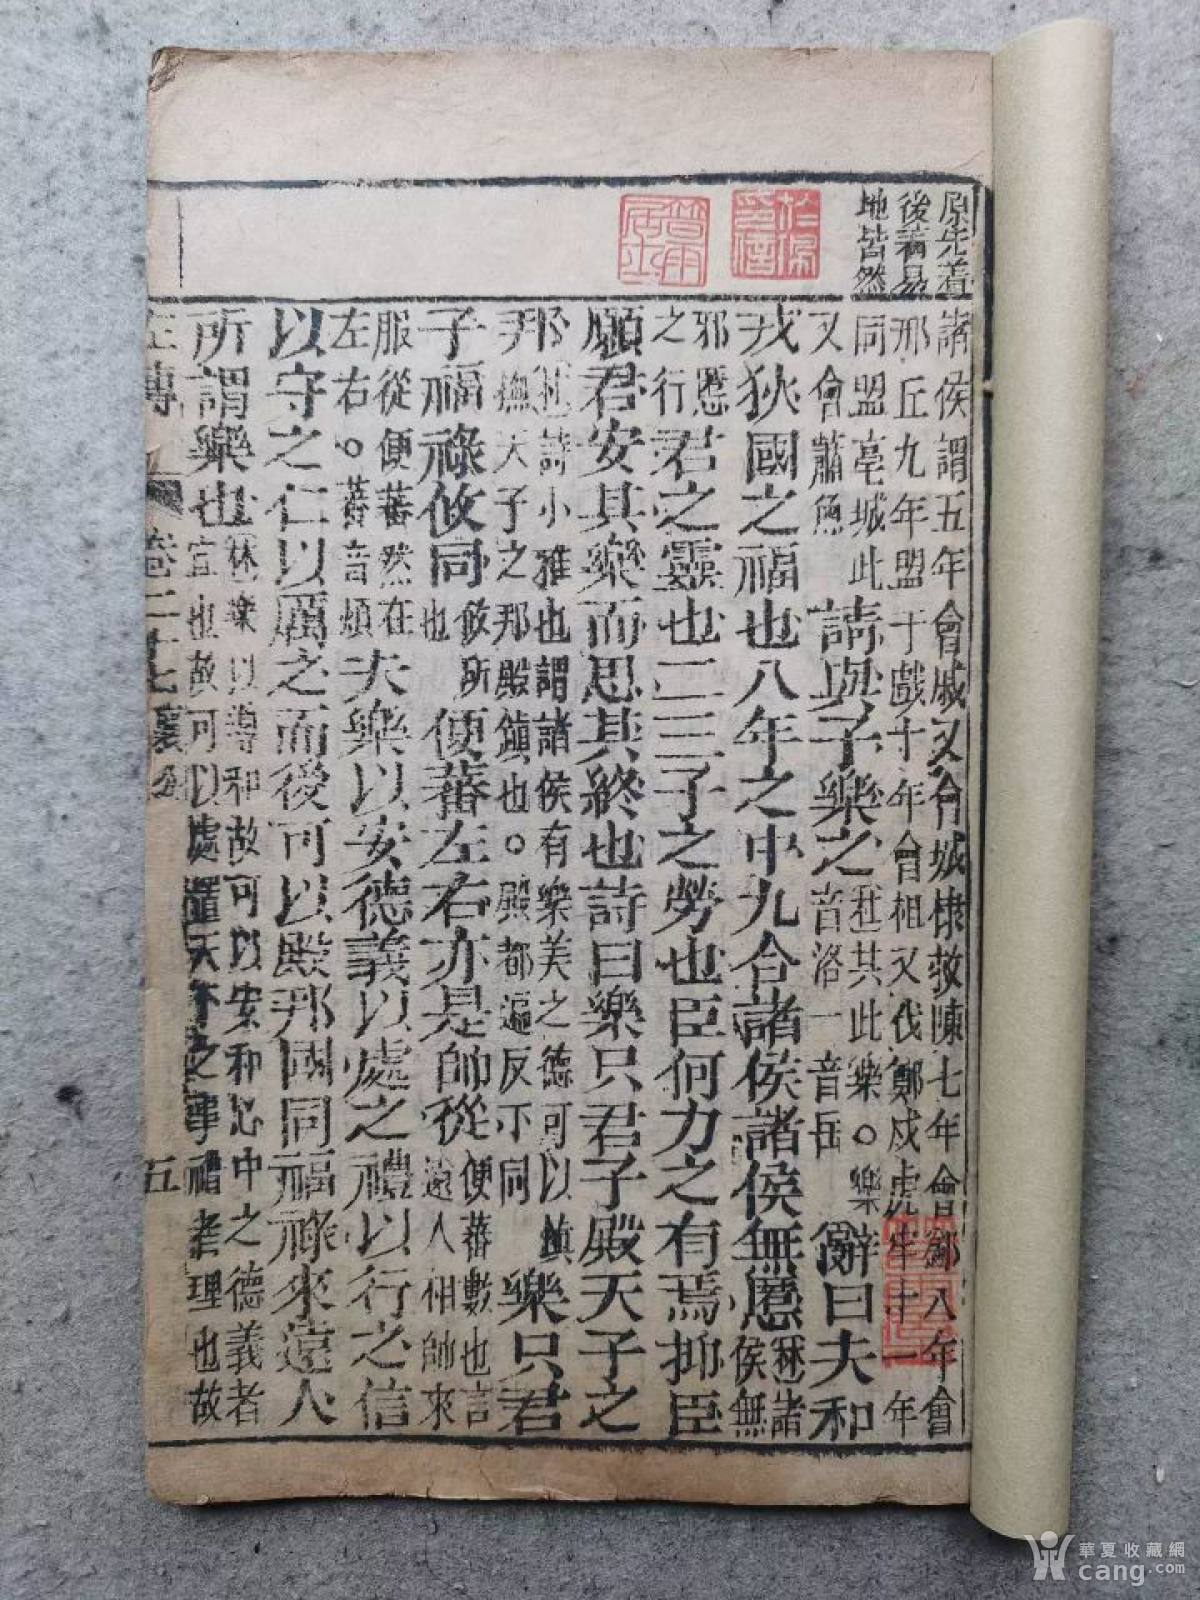 原先着
後着易
地皆然
諸侯謂五年會戚又會城棣救陳七年會鄬八年會
邢丘九年盟于戲十年會柤又伐鄭戍虎牢十一年
同盟亳城北又會蕭魚請與子樂之杜共此樂。樂音洛一音岳辭曰夫和
戎狄國之福也八年之中九合諸侯諸侯無慝林諸侯無
邪慝之行君之靈也二三子之勞也臣何力之有焉抑臣
願君安其樂而思其終也詩曰樂只君子殿天子之
邦杜詩小雅也謂諸侯有樂美之德可以鎮尹撫天子之邦殿鎮也。殿都遍反下同樂只君
子福祿攸同攸所也便蕃左右亦是帥從便蕃數也言遠人相帥來
服從便蕃然在左右。蕃音煩夫樂以安德義以處之禮以行之信
以守之仁以厲之而後可以殿邦國同福祿來遠人
所謂樂也林樂以導和故可以安和心中之德義者宜也故可以處置天下之事禮者理也故
左傳 卷二十七襄公 五
華夏收藏網
cang.com